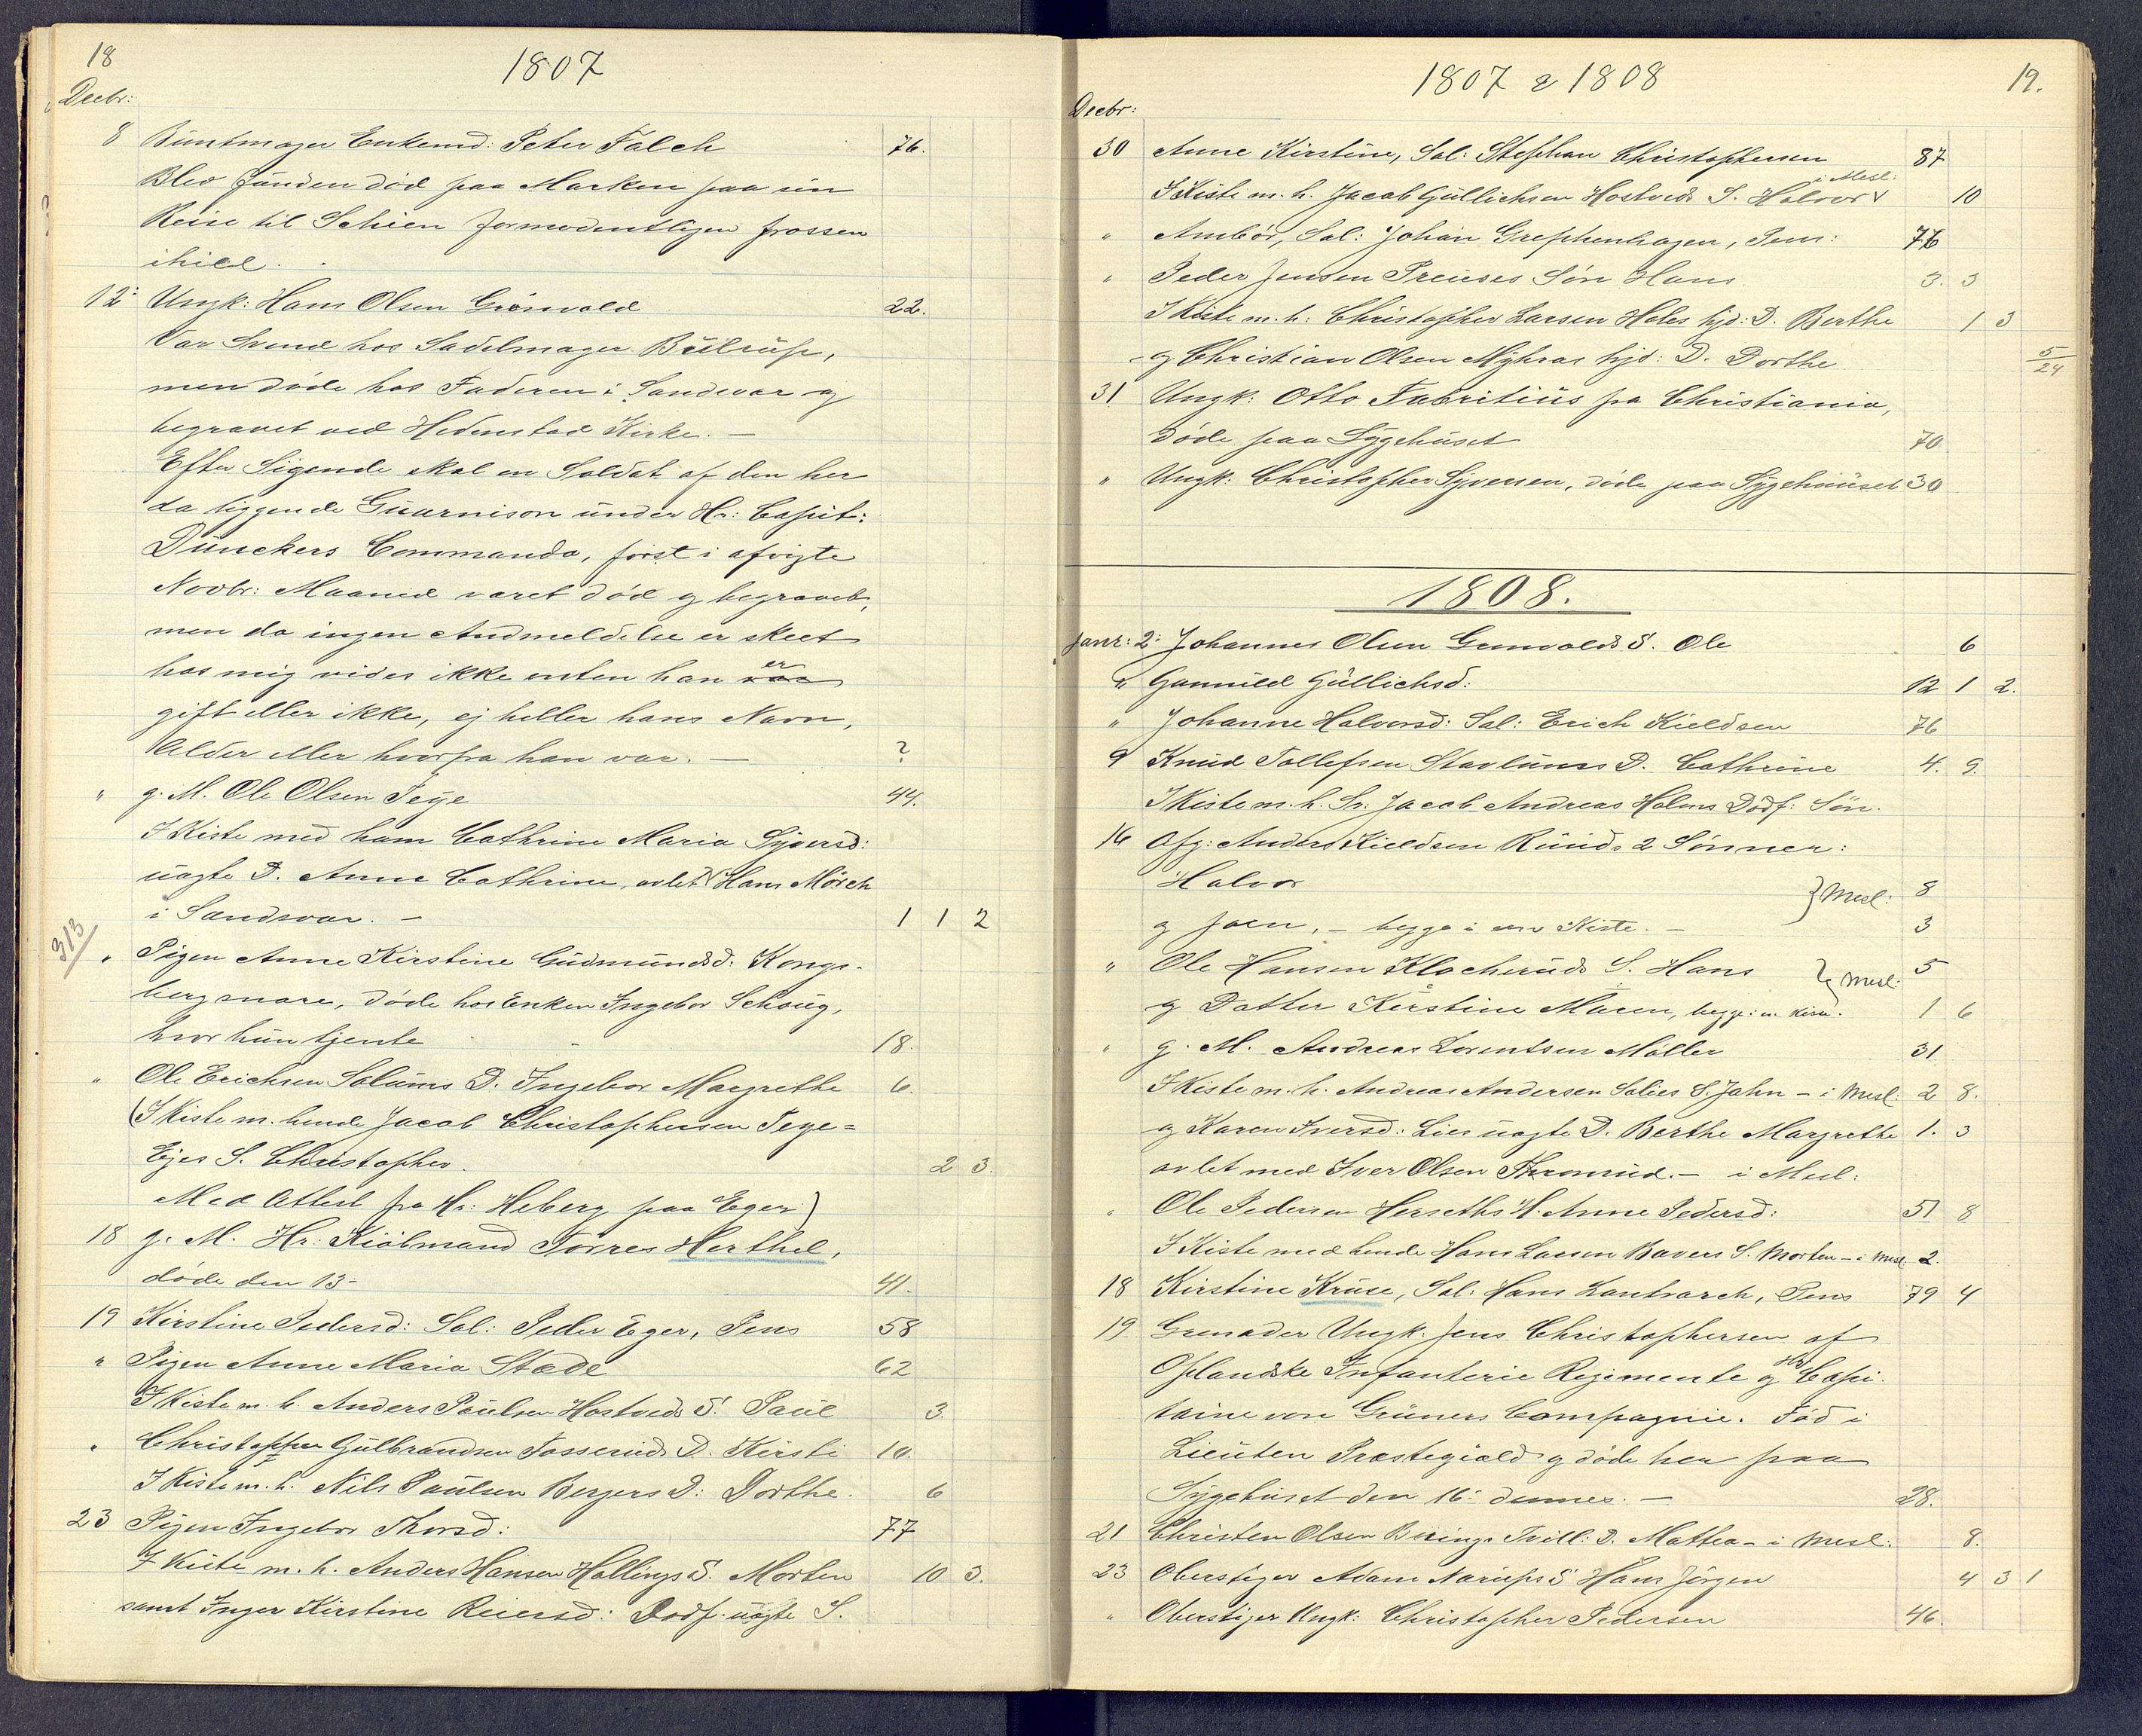 18
1807
Decbr:
8 Buntmager Enkemd: Peter Falch 76.
Blev funden död paa Marken paa sin
Reise til Schien formodentligen frossen
ihiel.
12: Ungk: Hans Olsen Grönvold 22.
Var Svend hos Sadelmager
men döde hos Faderen i Sandsvær og
begravet ved Hedenstad Kirke. —
Efter Sigende skal en Soldat af den her
da liggende Guarnison under Hr: Capit:
Dunckers Commando, först i afvigte
Novbr: Maaned været död og begravet,
men da ingen Andmeldelse er skeet
hos mig vides ikke enten han er
gift eller ikke, ej heller hans Navn,
Alder eller hvorfra han var. — ?
" g. M. Ole Olsen Teye 44.
I Kiste med ham Cathrine Maria Syversd:
uægte D. Anne Cathrine, avlet Hans Mörch
i Sandsvær. — 1 1 2
313
" Pigen Anne Kirstine Gudmundsd. Kongs-
berg mare, döde hos Enken Ingebor Schoug,
hvor hun tjente 18.
" Ole Erichsen Solums D. Ingebor Margrethe 6.
(I Kiste m. hende Jacob Christophersen Teye=
Ejes S. Christopher. 2 3.
Med Attest fra Hr: Heberg paa Eger)
18 g. M. Hr: Kiöbmand Torres Herthel,
döde den 13- 41.
19 Kirstine Pedersd: Sal: Peder Eger, Pens 58
" Pigen Anne Maria Stade 62
I Kiste m. h. Anders Poulsen Hostveds S. Paul 3.
" Christopher Gulbrandsen Fosseruds D. Kirsti 10.
I Kiste m. h. Nils Paulsen Bergers D: Dorthe. 6
23 Pigen Ingebor Thorsd: 77
I Kiste m. h. Anders Hansen Hollings S. Morten 10 3.
samt Inger Kirstine Reiersd: Dödf. uægte S.
1807 & 1808
19.
Decbr:
30 Anne Kirstine, Sal: Stephan Christophersen 87
I Kiste m. h. Jacob Gullichsen Hostveds S. Halvor i Mesl: 10
" Ambör, Sal: Johan Grephenhagen, Pens: 76
" Peder Jensen Preuses Sön Hans 3. 3
I Kiste m. h: Christopher Larsen Holes hjd: D. Berthe 1 3
og Christian Olsen Myhras hjd: D. Dorthe 5/24
31 Ungk: Otto Fabritius fra Christiania,
döde paa Sygehuset 70
" Ungk: Christopher Syversen, döde paa Sygehuuset 30
1808.
Janr: 2: Johannes Olsen Grunvolds S. Ole 6
" Gunnild Gullichsd: 12 1 2.
" Johanne Halvorsd: Sal: Erich Kieldsen 76
9 Knud Tollefsen Stavlums D. Cathrine 4. 9.
I Kiste m. h. Sr. Jacob Andreas Holms Dödf: Sön.
16 Afg: Anders Kieldsen Ruuds 2 Sönner:
Halvor } Mesl: 8
og Joen, — begge i een Kiste. — 3
" Ole Hansen Klocheruds S. Hans } Mesl: 5
og Datter Kirstine Maren, begge i en Kiste. 1 6
" g. M. Andreas Lorentsen Möller 31
I Kiste m. h. Andreas Andersen Solies S. John - i Mesl: 2 8.
og Karen Iversd: Lies uægte D. Berthe Margrethe 1. 3
avlet med Iver Olsen Thronrud. — i Mesl:
" Ole Pedersen Herseths H. Anne Pedersd: 51 8
I Kiste med hende Hans Larsen Bavers S. Morten - i Mesl. 2.
18 Kirstine Kruse, Sal: Hans Lantrarch, Pens 79 4
19 Grenader Ungk. Jens Christophersen af
Oplandske Infanterie Regimente og Hr. Capi-
taine von Gruners Compagnie. Föd i
Lieuten Præstegiæld og döde her paa
Sygehuset den 16: dennes. — 28.
21 Christen Olsen Bings Tvill: D. Mathea - i Mesl. 8.
23 Oberstiger Adam Narups S Hans Jörgen 4 3 1
" Oberstiger Ungk: Christopher Pedersen 46.